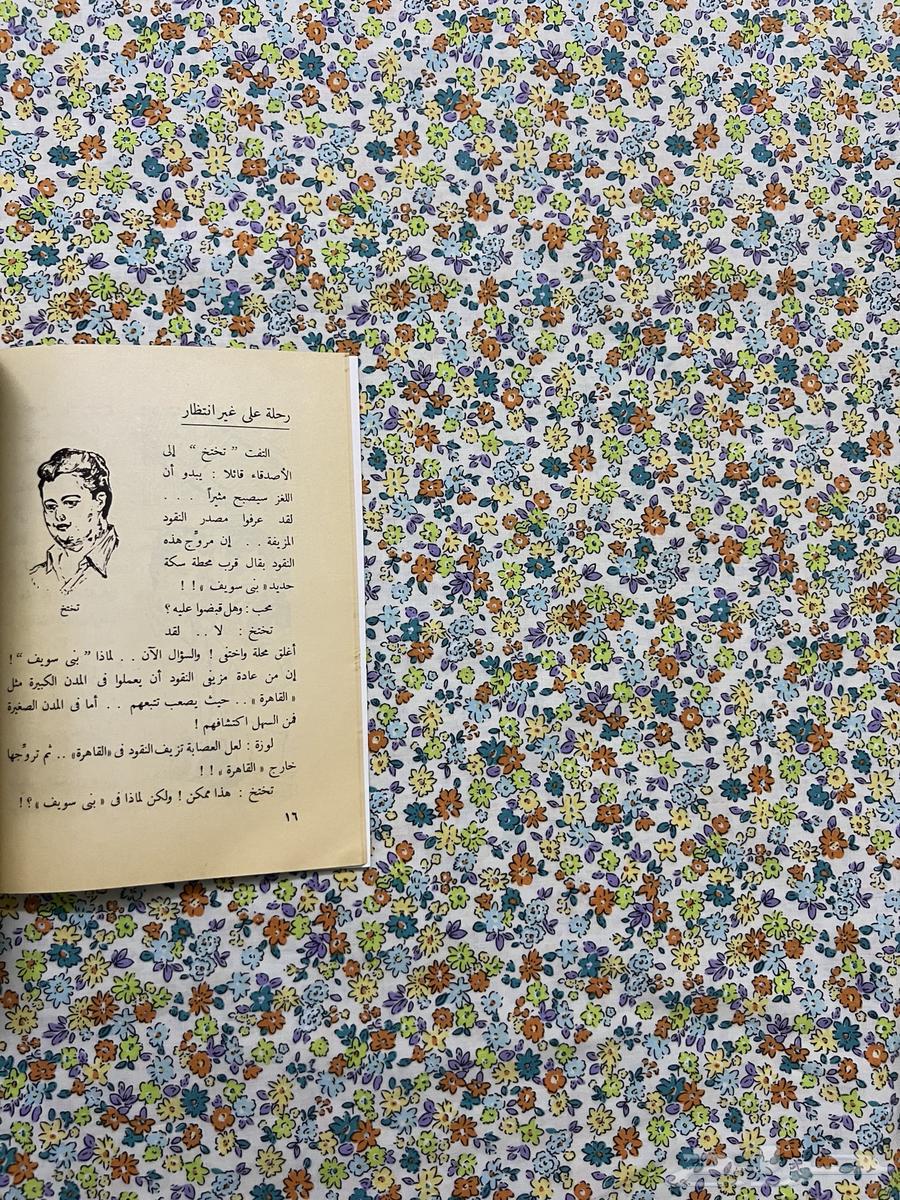 رحلة على غير انتظار
التفت " تختخ " إلى
الأصدقاء قائلا : يبدو أن
اللغز سيصبح مثيراً . . .
لقد عرفوا مصدر النقود
المزيفة . . إن مروِّج هذه
النقود بقال قرب محطة سكة
حديد « بنى سويف » ! !
محب : وهل قبضوا عليه ؟
تختخ : لا . . لقد
تختخ
أغلق محلة واختفى ! والسؤال الآن . . لماذا " بنى سويف " !
إن من عادة مزيفى النقود أن يعملوا فى المدن الكبيرة مثل
« القاهرة » . . حيث يصعب تتبعهم . . أما فى المدن الصغيرة
فمن السهل اكتشافهم !
لوزة : لعل العصابة تزيف النقود فى « القاهرة » . . ثم تروِّجها
خارج « القاهرة » ! !
تختخ : هذا ممكن ! ولكن لماذا فى « بنى سويف » ؟ !
١٦